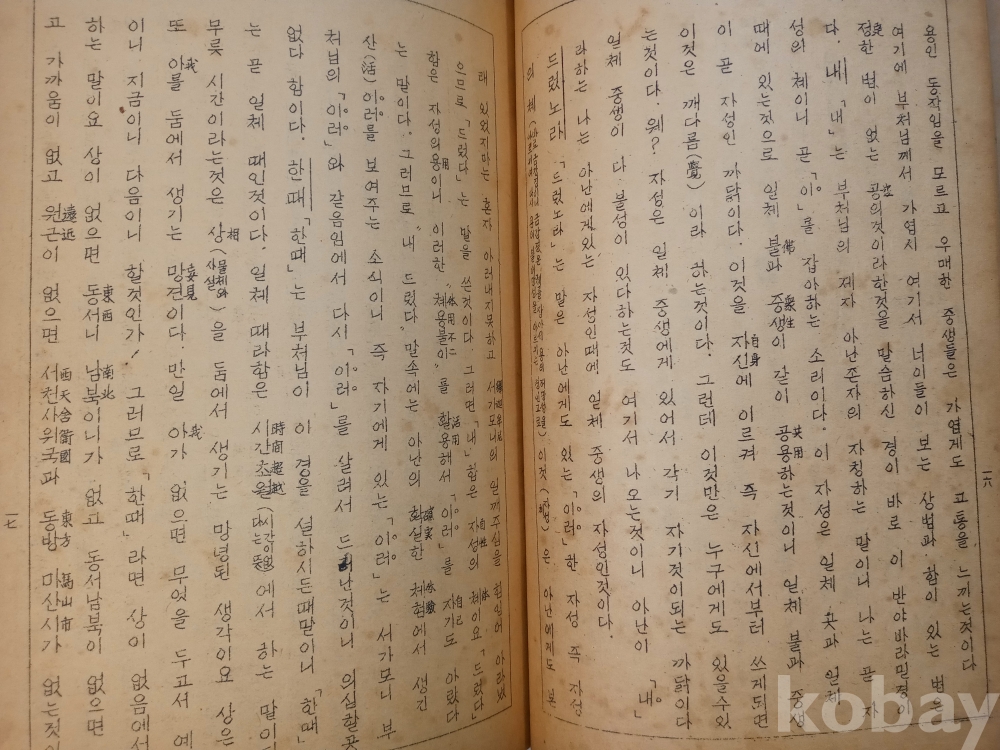 용인 동작임을 모르고 우매한 중생들은 가엽게도 고통을 느끼는것이다
여기에 부처님께서 가엽시 여기서 너이들이 보는 상법과 함이 있는 법은
정한 법이 없는 공의것이라한것을 말씀하신 경이 바로 이 반야바라밀경이
다. 내「내」는 부처님의 제자 아난존자의 자칭하는 말이니 나는 곧 자
성의 체이니 곧「이」몰 잡아하는 소리이다. 이 자성은 일체 곳과 일체
때에 있는것으로 일체 불과佛 중생이衆生 같이 공용하는것이니共用 일체 불과 중생
이 곧 자성인 까닭이다. 이것을 자신에自身 이르켜 즉 자신에서부터 쓰게되면
이것은 깨다름(覺)이라 하는것이다. 그런데 이것만은 누구에게도 있을수있
는것이다. 웨? 자성은 일체 중생에게 있어서 각기 자기것이되는 까닭이다
일체 중생이 다 불성이 있다하는것도 여기서 나오는것이니 아난이「내」
라하는 나는 아난에게있는 자성인때에 일체 중생의 자성인것이다.
드렀노라「드렀노라」는 말은 아난에게도 있는「이러」한 자성 즉 자성
의 체 이것 은 아난에게도 본
래 있었지마는 혼자 아러내지못하고 서가모니의 일깨주심을 힘입어 아라냈
으므로「드렀다」는 말을 쓰것이다. 그러면「내」함은 자성의自性 체이요體「드렀다」
함은 자성의용이니用 이러한 "체용불이"體用不二 를 활용해서活用「이러」를 자기도自己 아랐다
는 말이다. 그러브로 "내 드렀다" 말속에는 아난의 확실한確實 체험에서體驗 생긴
산(活)이러를 보여주는 소식이니 즉 자기에게 있는「이러」는 서가모니 부
처님의「이러」와 같음임에서 다시「이러」를 살려서 드러난것이니 의심할곳
없다 함이다. 한때「한때」는 부처님이 이 경을 설하시든때말이니「한때」
는 곧 일체 때인것이다. 일체 때라함은 시간초월時間超越(시간이없다는뜻)에서 하는 말이다
무릇 시간이라는것은 상相(물체와 사실)을 둠에서 생기는 망녕된 생각이요 상은
또 아를我 둠에서 생기는 망견이다.妄見 만일 아가我 없으면 무엇을 두고서 예
이니 지금이니 다음이니 할것인가! 그러므로「한때」라면 상이 없음에서
하는 말이요 상이 없으면 동서니東西 남북이니가南北 없고 동서남북이 없으면
고 가까움이 없고 원근이遠近 없으면 서천사위국과西天舍衛國 동방東方 마산시가馬山市 없는것이
一六
一七
kobay